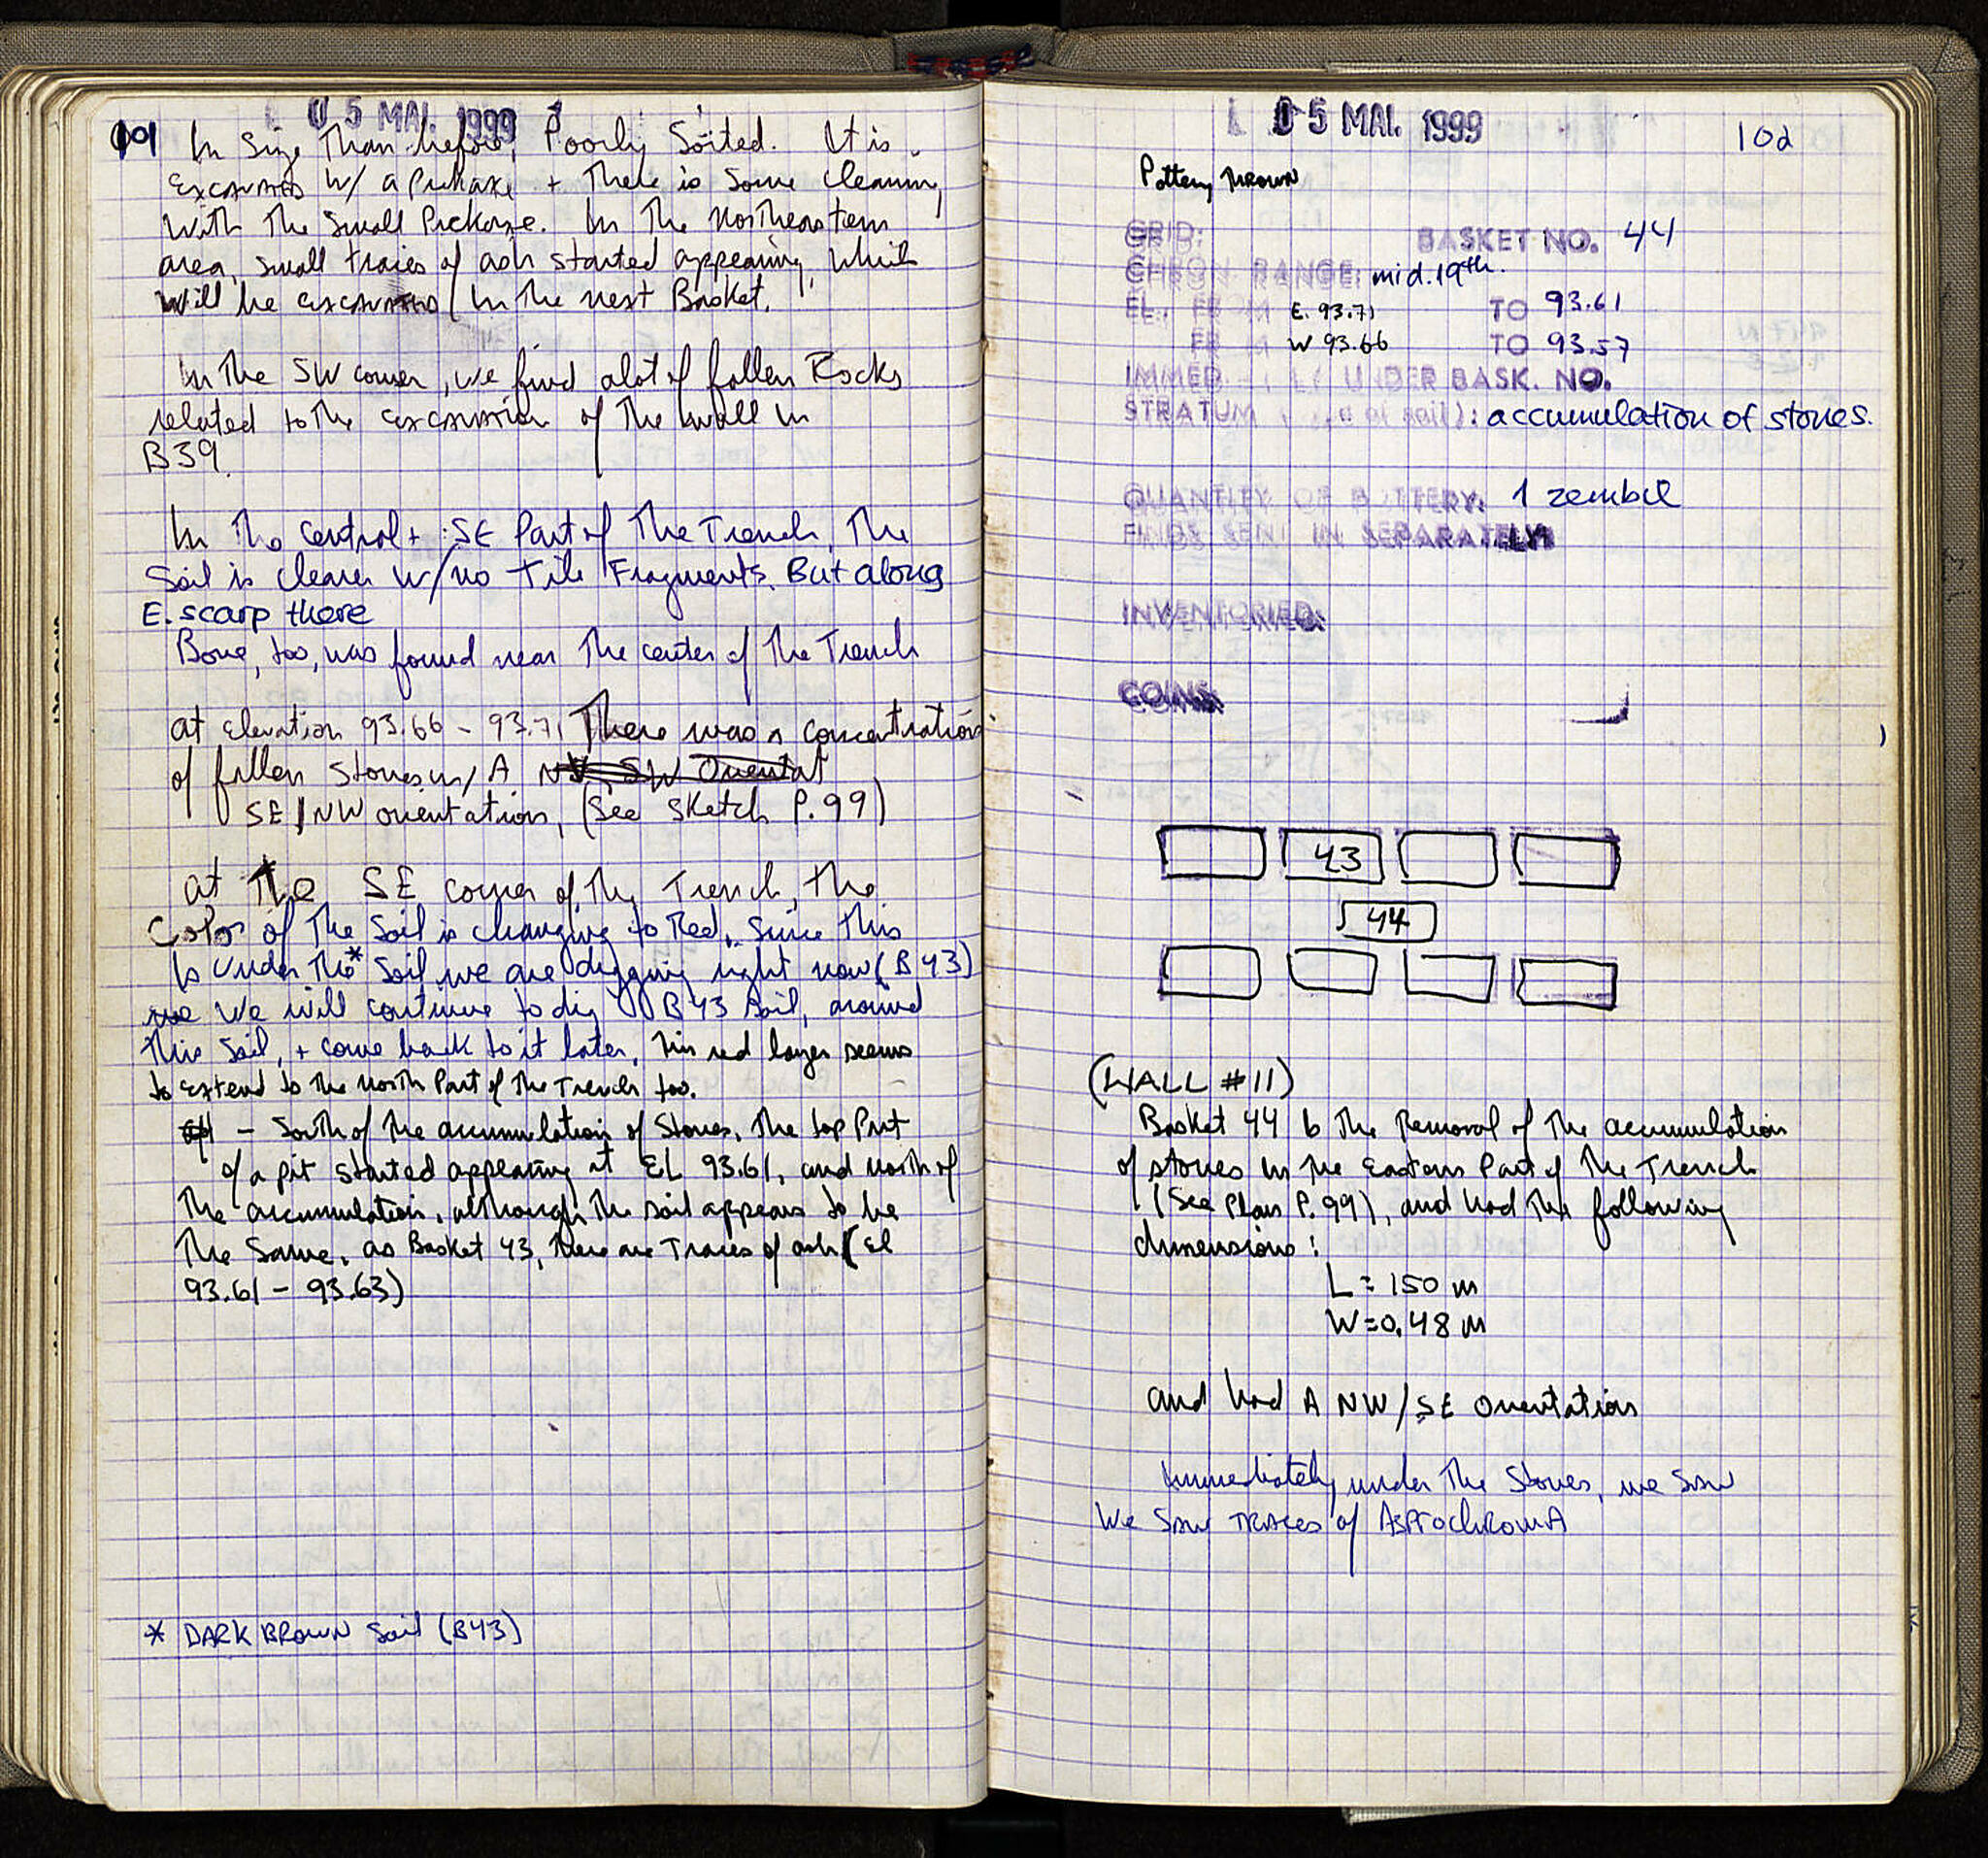 05 MAI. 1999
101 In Size Than before, Poorly Sorted. It is
excavated w/ a Pickaxe + There is some cleaning
with the small Pickaxe. In the Northeastern
area, small traces of ash started appearing, which
will be excavated in the next Basket.
In the SW corner, we find alot of fallen Rocks
related to the excavation of the wall in
B39.
In The Central + SE Part of The Trench, The
Soil is cleaner w/ no Tile Fragments. But along
E. scarp there
Bone, too, was found near The center of The Trench
at Elevation 93.66 - 93.71 There was a concentration
of fallen stones w/ A NW SW Orientat
SE/NW orientation, (See Sketch P.99)
at The SE corner of The Trench, the
Color of The Soil is changing to Red. Since this
is under the* soil we are digging right now (B43)
we will continue to dig B43 soil, around
this soil, + come back to it later, This red layer seems
to extend to the North Part of the Trench too.
- South of the accumulation of Stones, The top Part
of a pit started appearing at EL 93.61, and north of
The accumulation, although the soil appears to be
The Same, as Basket 43, there are Traces of ash (El
93.61 - 93.63)
* DARK BROWN Soil (B43)
05 MAI. 1999
102
Pottery thrown
GRID: BASKET NO. 44
CHRON. RANGE: mid.19th.
EL. FROM E. 93.71 TO 93.61
FROM W 93.66 TO 93.57
IMMED. UNDER BASK. NO.
STRATUM (of soil): accumulation of stones.
QUANTITY OF POTTERY: 1 zembil
FINDS SENT IN SEPARATELY:
INVENTORIED:
COINS:
43
44
(WALL #11)
Basket 44 is The Removal of The accumulation
of stones in the Eastern Part of The Trench
(See Plan P.99), and had The following
dimensions:
L = 150 m
W = 0,48 m
and had A NW/SE Orientation
Immediately under The Stones, we saw
We Saw TRACES of AsProchromA